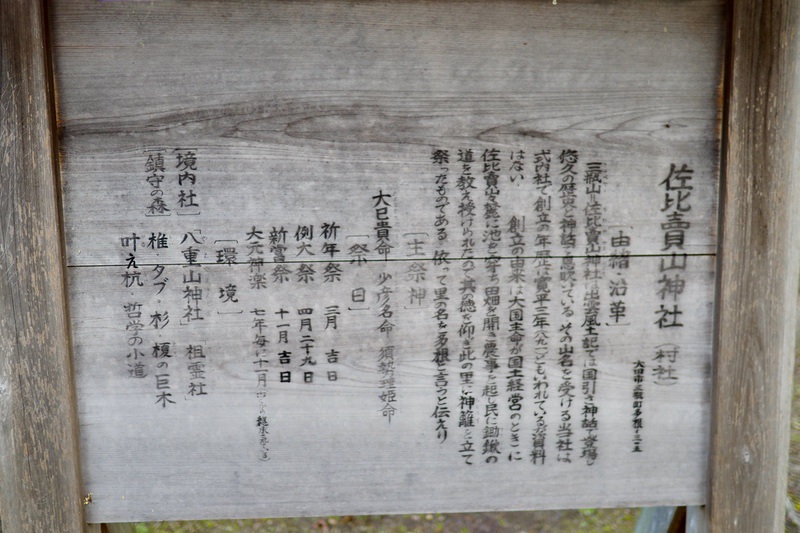 佐比賣山神社（村社）
大田市三瓶町多根
［由緒・沿革］
三瓶山と佐比賣山神社は出雲風土記では国引き神話で登場し
悠久の歴史と神話を息吹いている その山名を受ける当社は
式内社で創立の年歴は寛平三年（八九一）ともいわれているが資料
はない 創立の由来は大国主命が国土経営のときに
佐比賣山麓に池を穿ち田畑を開き農事を起し民に鋤鍬の
道を教え授けられたので其の徳を仰ぎ此の里に神籬を立て
祭ったものである 依って里の名を多根と言うと伝えり
［主祭神］
大巳貴命 少彦名命 須勢理姫命
［祭日］
祈年祭 三月 吉日
例大祭 四月二十九日
新嘗祭 十一月吉日
大元神楽 七年毎に十一月
［環境］
［境内社］「八重山神社」 祖霊社
［鎮守の森］ 椎・タブ・杉 榎の巨木
叶え杭・哲学の小道